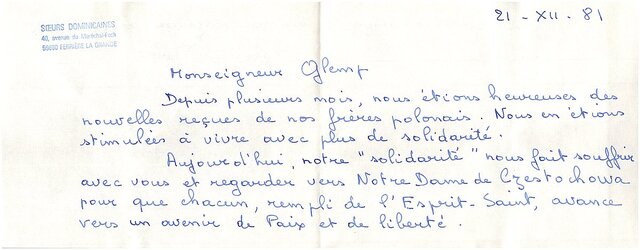 SŒURS DOMINICAINES
40, avenue du Maréchal-Foch
59680 FERRIÈRE LA GRANDE
21 - XII . 81
Monseigneur Glemp
Depuis plusieurs mois, nous étions heureuses des
nouvelles reçues de nos frères polonais. Nous en étions
stimulées à vivre avec plus de solidarité.
Aujourd'hui, notre "solidarité" nous fait souffrir
avec vous et regarder vers Notre Dame de Częstochowa
pour que chacun, rempli de l'Esprit-Saint, avance
vers un avenir de Paix et de liberté.